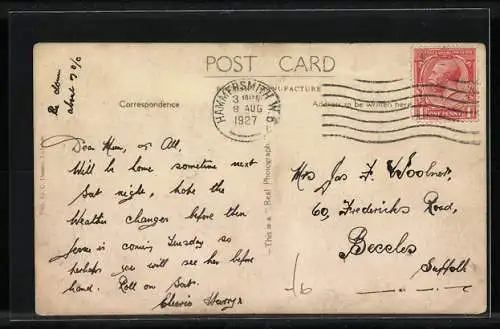 POST CARD
MANUFACTURE
Correspondence
Address to be written here
HAMMERSMITH. W.6
3
8 AUG
1927
ONE PENNY
This is a "Real Photograph"
Dear Mum, & All,
Will be home sometime next
Sat night, hope the
Weather changes before then
is coming Tuesday so
perhaps you will see her before
hand. Roll on Sat.
Cheerio Harry x
Mrs Jas F. Woolnor,
60, Fredericks Road,
Beccles
Suffolk
/6